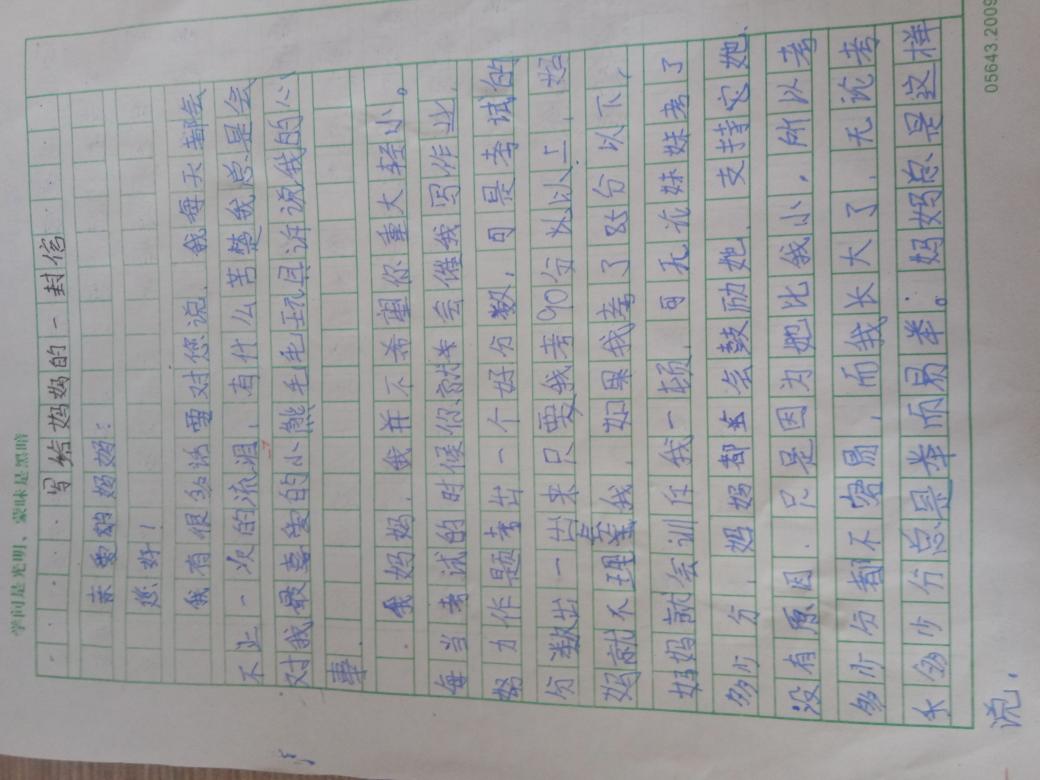 学问是光明、蒙昧是黑暗
写给妈妈的一封信
亲爱的妈妈:
您好!
我有很多话要对您说,我每天都会
不止一次的流泪,有什么苦楚我总是会
对我最喜爱的小熊毛毛玩具诉说我的心
事.
我妈妈,我并不希望你重大轻小。
每当考试的时候你会催我写作业,
努力作题考出一个好分数,可是考试的
分数出一出来只要我考90分以上,妈
妈就不理我,如果我考了85分以下,
妈妈就会训斥我一顿,可无论妹妹考了
多少分,妈妈都会鼓励她,支持她.
没有原因.只是因为她比我小,所以考
多少分都不容易,而我长大了,无论考
多少分总是举而易举。妈妈总是这样
说.
05643.2009